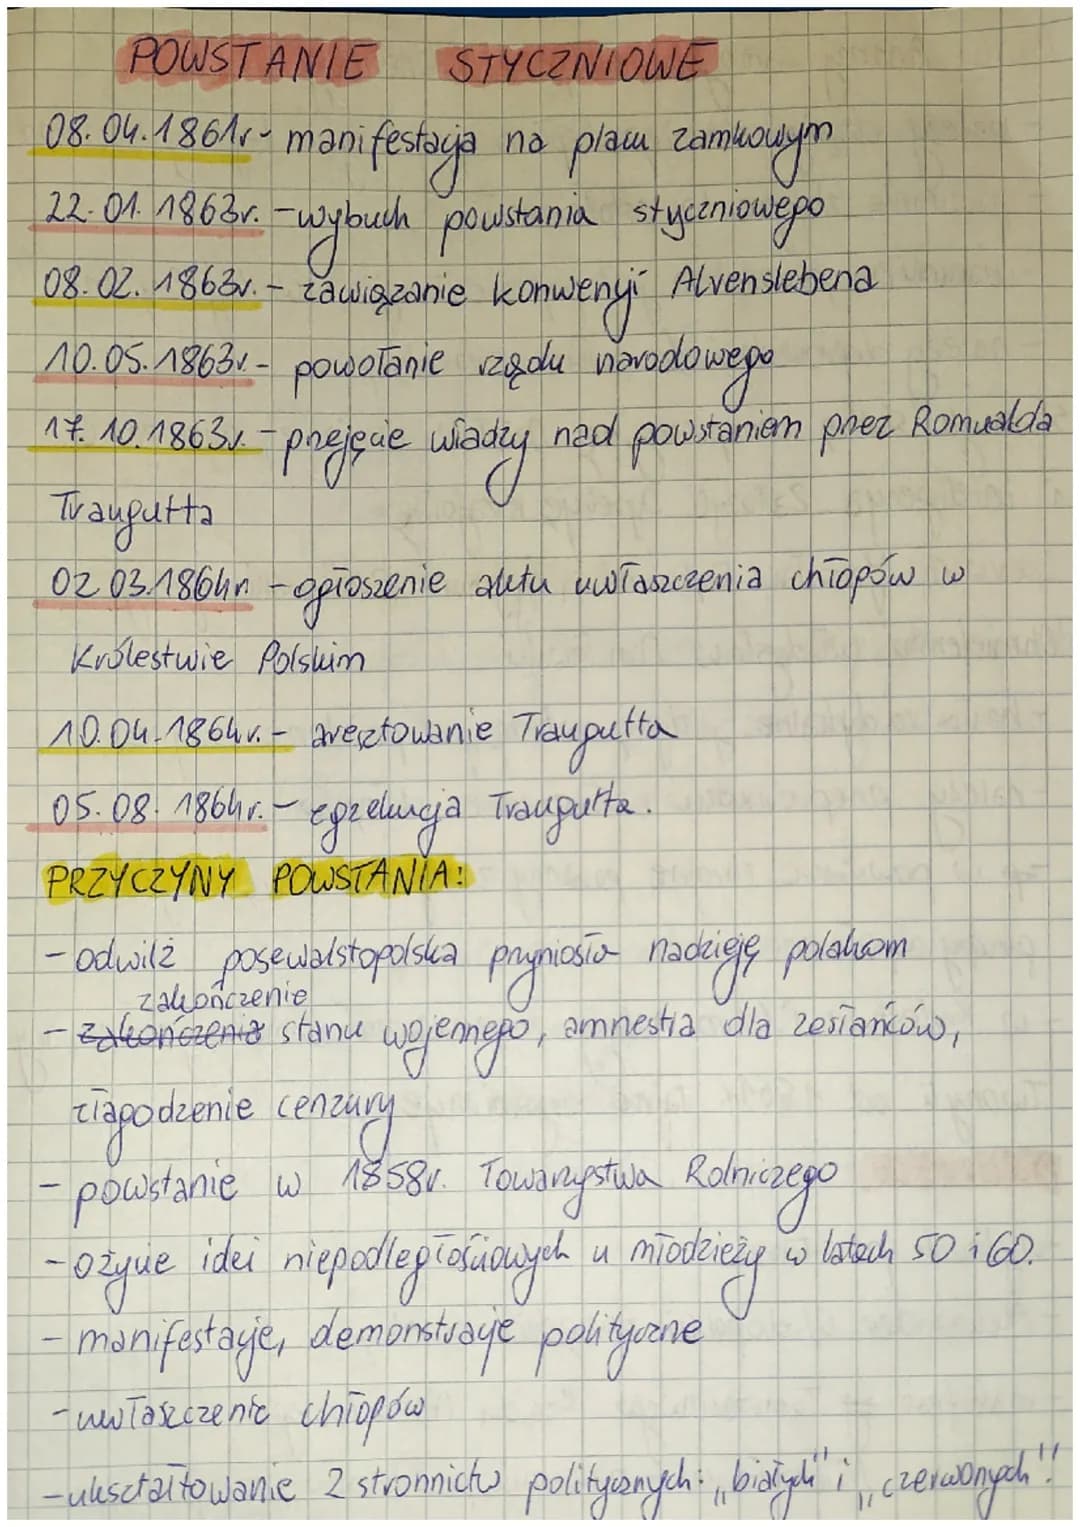 POWSTANIE STYCZNIOWE
08.04.1861r - manifestacja na placu zamkowym
22.01.1863r. - wybuch powstania styczniowego
08.02.1863r. - zawiązanie konwencji Alvenslebena
10.05.1863r. - powołanie rządu narodowego
17.10.1863r. - przejęcie władzy nad powstaniem przez Romualda
Traugutta
02.03.1864r. - ogłoszenie aktu uwłaszczenia chłopów w
Królestwie Polskim
10.04.1864r. - aresztowanie Traugutta
05.08.1864r. - egzekucja Traugutta.
PRZYCZYNY POWSTANIA:
- odwilż posewalstopolska przyniosła nadzieję polakom
zakończenie
- zakończenia stanu wojennego, amnestia dla zesłańców,
złagodzenie cenzury
- powstanie w 1858r. Towarzystwa Rolniczego
- ożycie idei niepodległościowych u młodzieży w latach 50 i 60.
- manifestacje, demonstracje polityczne
- uwłaszczenie chłopów
- ukształtowanie 2 stronnictw politycznych: „białych" i „czerwonych"!